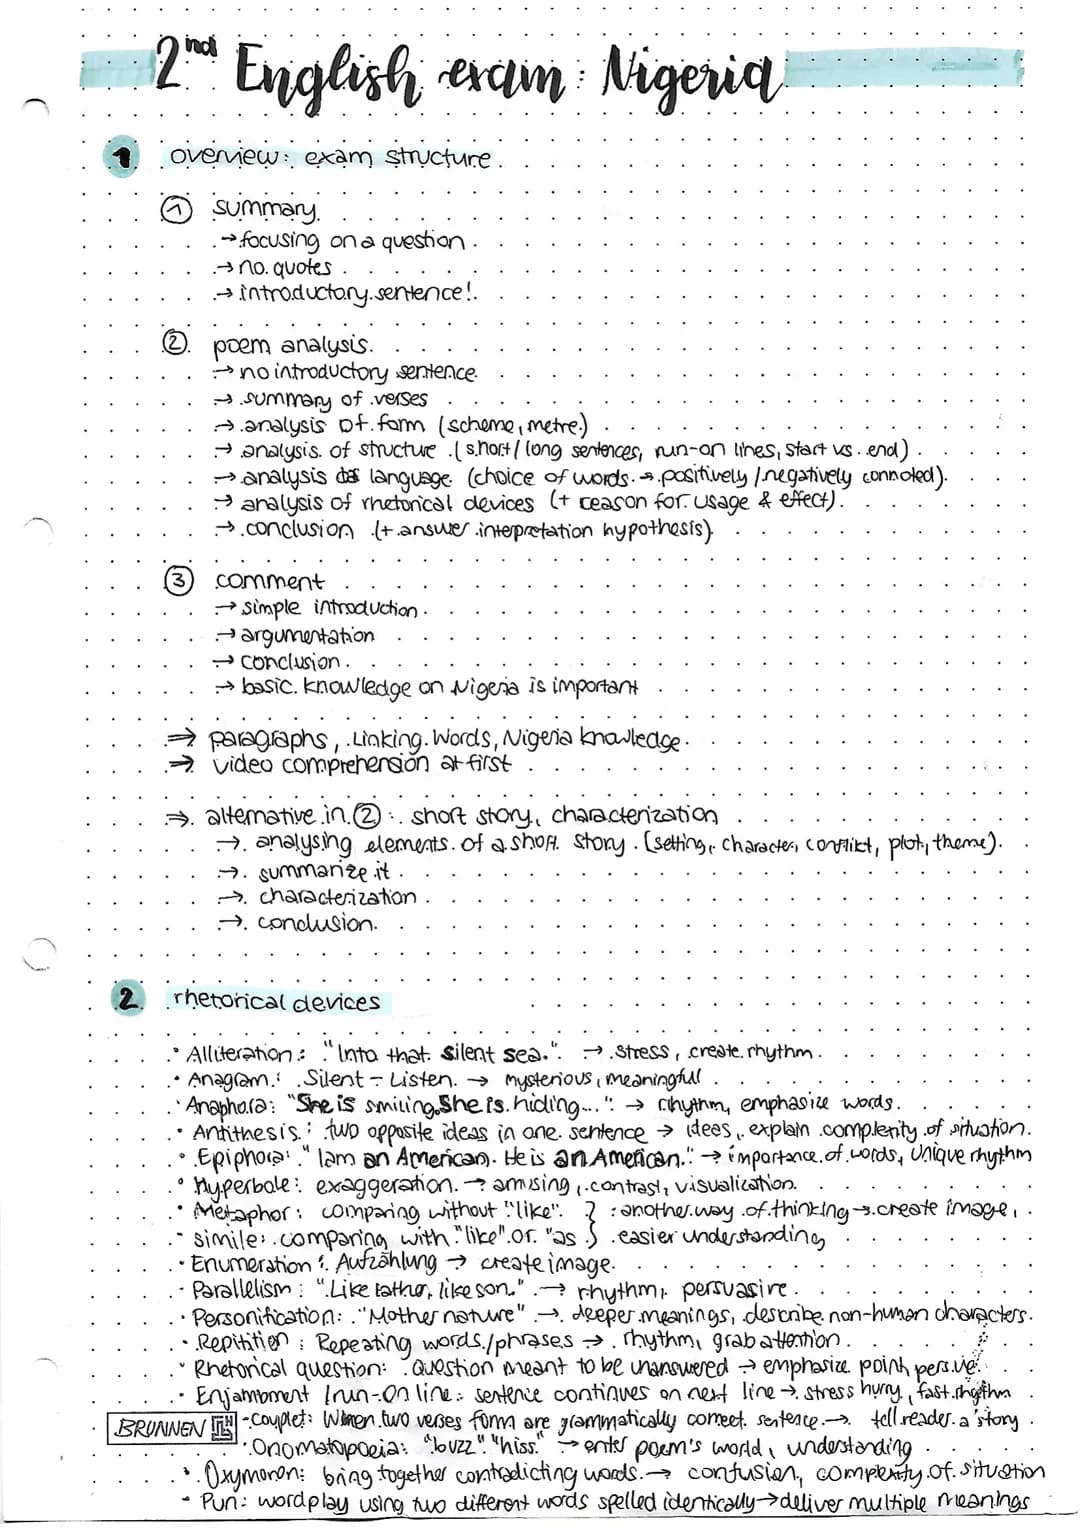 2nd English exam: Nigeria
1 overview: exam structure
① summary
→ focusing on a question
→ no quotes
→ introductory sentence!
② poem analysis
→ no introductory sentence
→ summary of verses
→ analysis of form (scheme, metre)
→ analysis of structure (short/long sentences, run-on lines, start vs. end)
→ analysis language (choice of words → positively/negatively connoted)
→ analysis of rhetorical devices (+ reason for usage & effect)
→ conclusion (+ answer interpretation hypothesis)
③ comment
→ simple introduction
→ argumentation
→ conclusion
→ basic knowledge on Nigeria is important
⇒ paragraphs, Linking Words, Nigeria knowledge
⇒ video comprehension at first
⇒ alternative in ②: short story, characterization
→ analysing elements of a short story (setting, character, conflikt, plot, theme)
→ summarize it
→ characterization
→ conclusion
2 rhetorical devices
• Alliteration: "Into that silent sea." → stress, create rhythm
• Anagram: Silent - Listen → mysterious, meaningful
• Anaphora: "She is smiling. She is hiding..." → rhythm, emphasize words
• Antithesis: two opposite ideas in one sentence → idees, explain complexity of situation
• Epiphora: "I am an American. He is an American." → importance of words, unique rhythm
• Hyperbole: exaggeration → amusing, contrast, visualization
• Metaphor: comparing without "like" } : another way of thinking → create image,
• simile: comparing with "like" or "as } easier understanding
• Enumeration: Aufzählung → create image
• Parallelism: "Like father, like son." → rhythm, persuasive
• Personification: "Mother nature" → deeper meanings, describe non-human characters
• Repitition: Repeating words/phrases → rhythm, grab attention
• Rhetorical question: question meant to be unanswered → emphasize point,
• Enjambment / run-on line: sentence continues on next line → stress hurry, fast rhythm
BRUNNEN - couplet: When two verses form are grammatically correct sentence → tell reader a story
• Onomatopoeia: "buzz" "hiss" → enter poem's world, understanding
• Oxymoron: bring together contradicting words → confusion, complexity of situation
• Pun: wordplay using two different words spelled identically → deliver multiple meanings